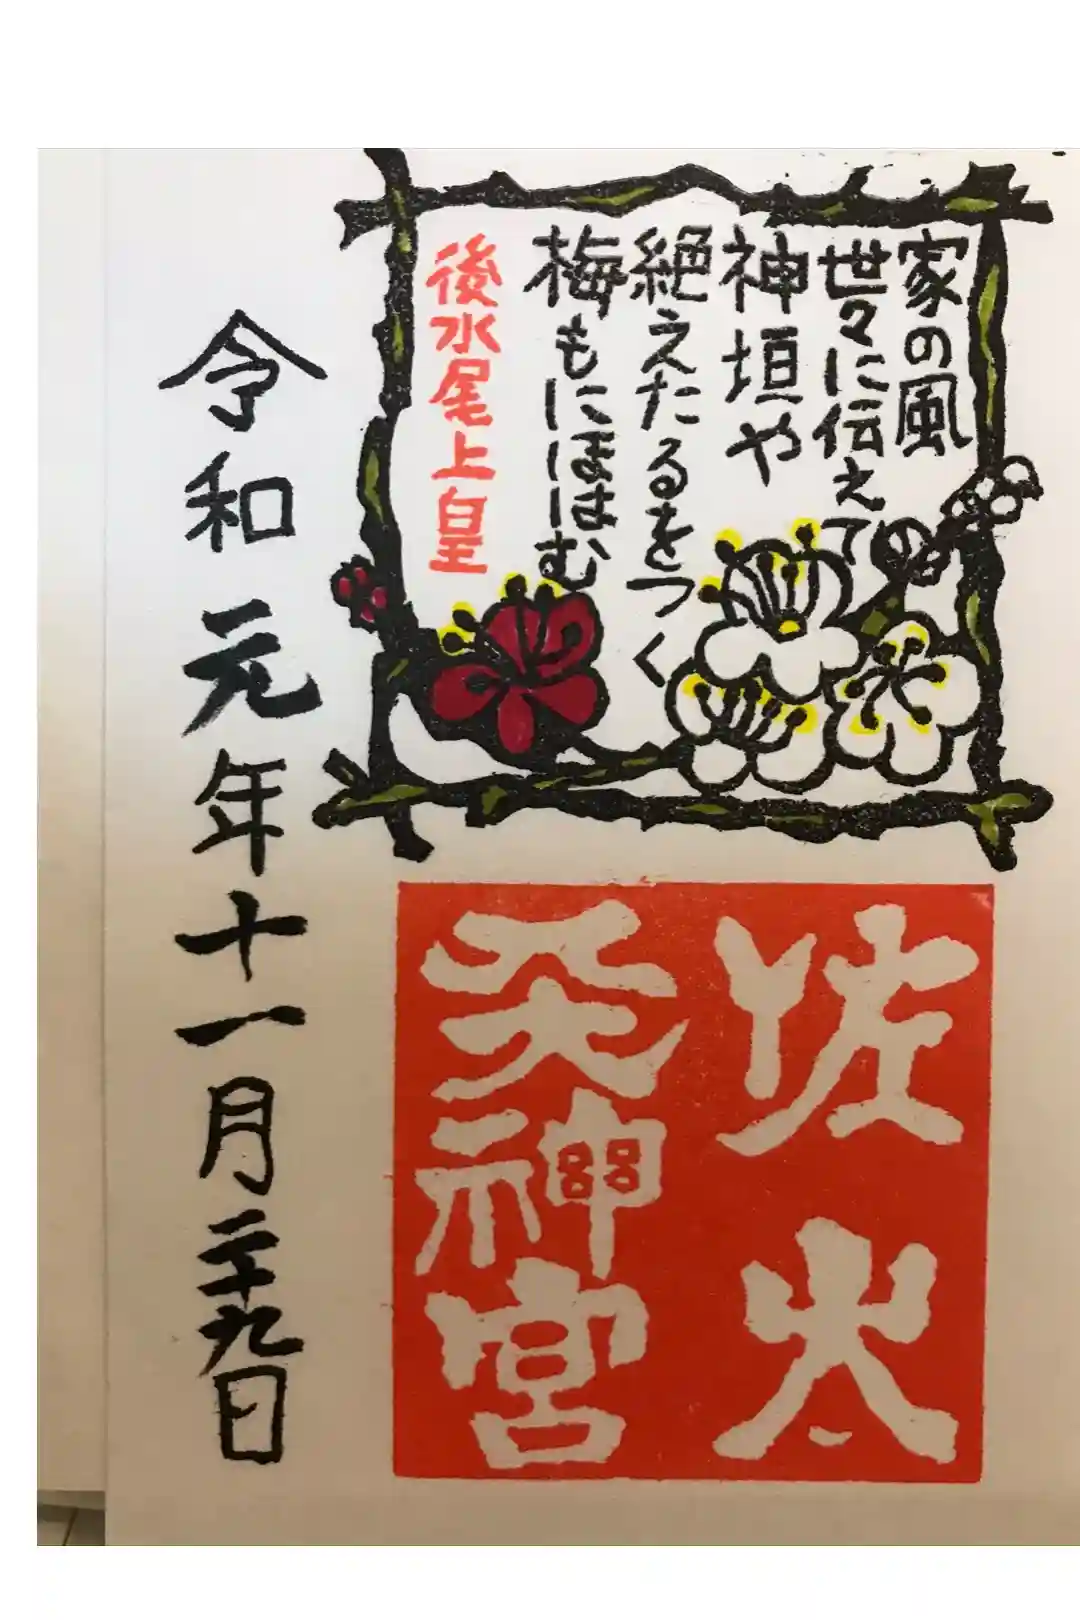 家の風
世々に伝えて
神垣や
絶えたるをつく
梅もにほはむ
後水尾上皇
佐太
天神宮
令和元年十一月二十九日